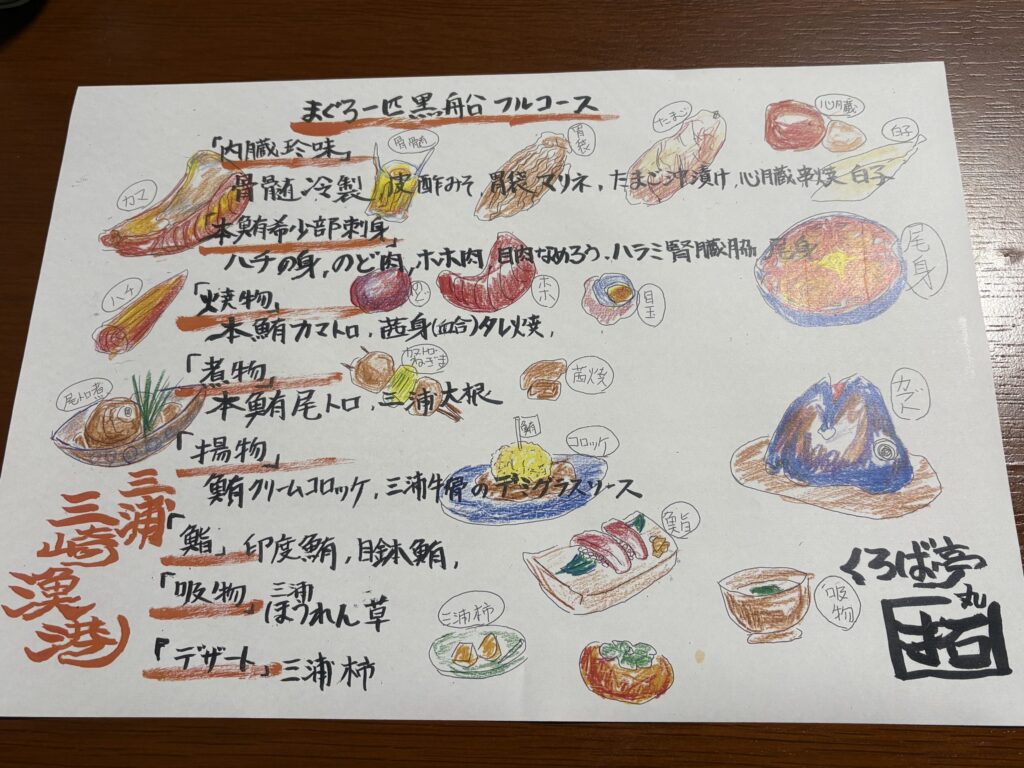 まぐろ一匹 黒船 フルコース
「内臓珍味」
骨髄冷製、皮酢みそ、胃袋マリネ、たまご沖漬け、心臓串焼 白子
「本鮪希少部刺身」
ハチの身、のど肉、ホホ肉 目肉なめろう、ハラミ腎臓脇 尾身
「焼物」
本鮪カマトロ、茜身(血合)タレ焼、
「煮物」
本鮪尾トロ、三浦大根
「揚物」
鮪クリームコロッケ、三浦牛骨のデミグラスソース
「鮨」印度鮪、目鉢鮪、
「吸物」三浦ほうれん草
『デザート』三浦柿
カマ
骨髄
胃袋
たまご
心臓
白子
ハチ
ホホ
目玉
尾身
尾トロ煮
カマトロねぎま
茜焼
カブト
鮪
コロッケ
鮨
三浦柿
吸物
三浦
三崎
漁港
くろば亭
丸